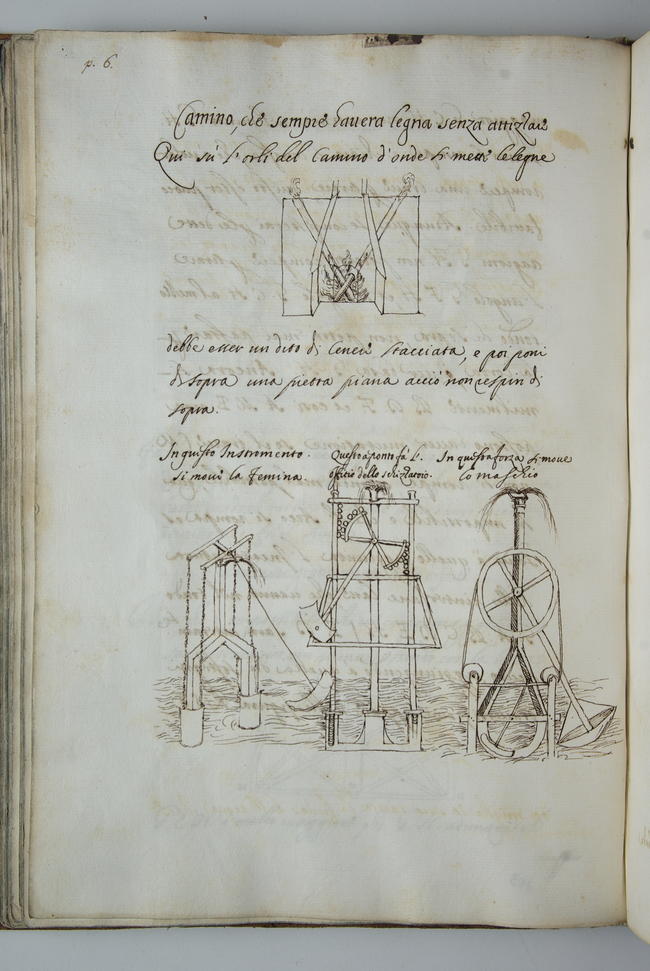 p. 6.
Camino, che sempre havera legna senza attizzare
Qui sù l'orli del Camino d'onde si mette le legne
debbe esser un dito di Cenere stacciata, e poi poni
di sopra una pietra piana acciò non respiri di
sopra.
In questo Instromento
si move la Femina.
Questo à ponto fà l'
officio dello schizzatoio.
In questa forza si move
lo maschio